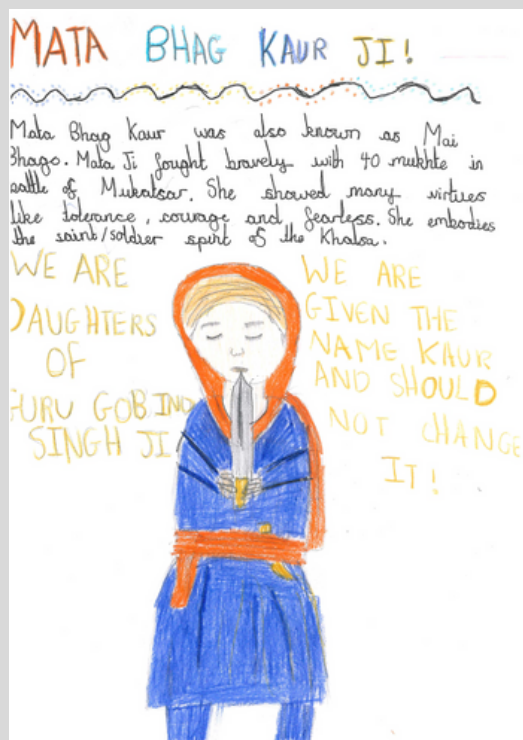 MATA BHAG KAUR JI!
Mata Bhag Kaur was also known as Mai
Bhago. Mata Ji fought bravely with 40 mukhte in
battle of Mukatsar. She showed many virtues
like tolerance, courage and fearless. She embodies
the saint/soldier spirt of the Khalsa.
WE ARE
DAUGHTERS
OF
GURU GOBIND
SINGH JI
WE ARE
GIVEN THE
NAME KAUR
AND SHOULD
NOT CHANGE
IT!